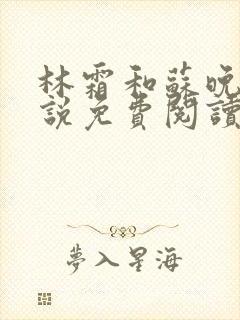 林霜和蘇晚
説免費閱讀
夢入星海